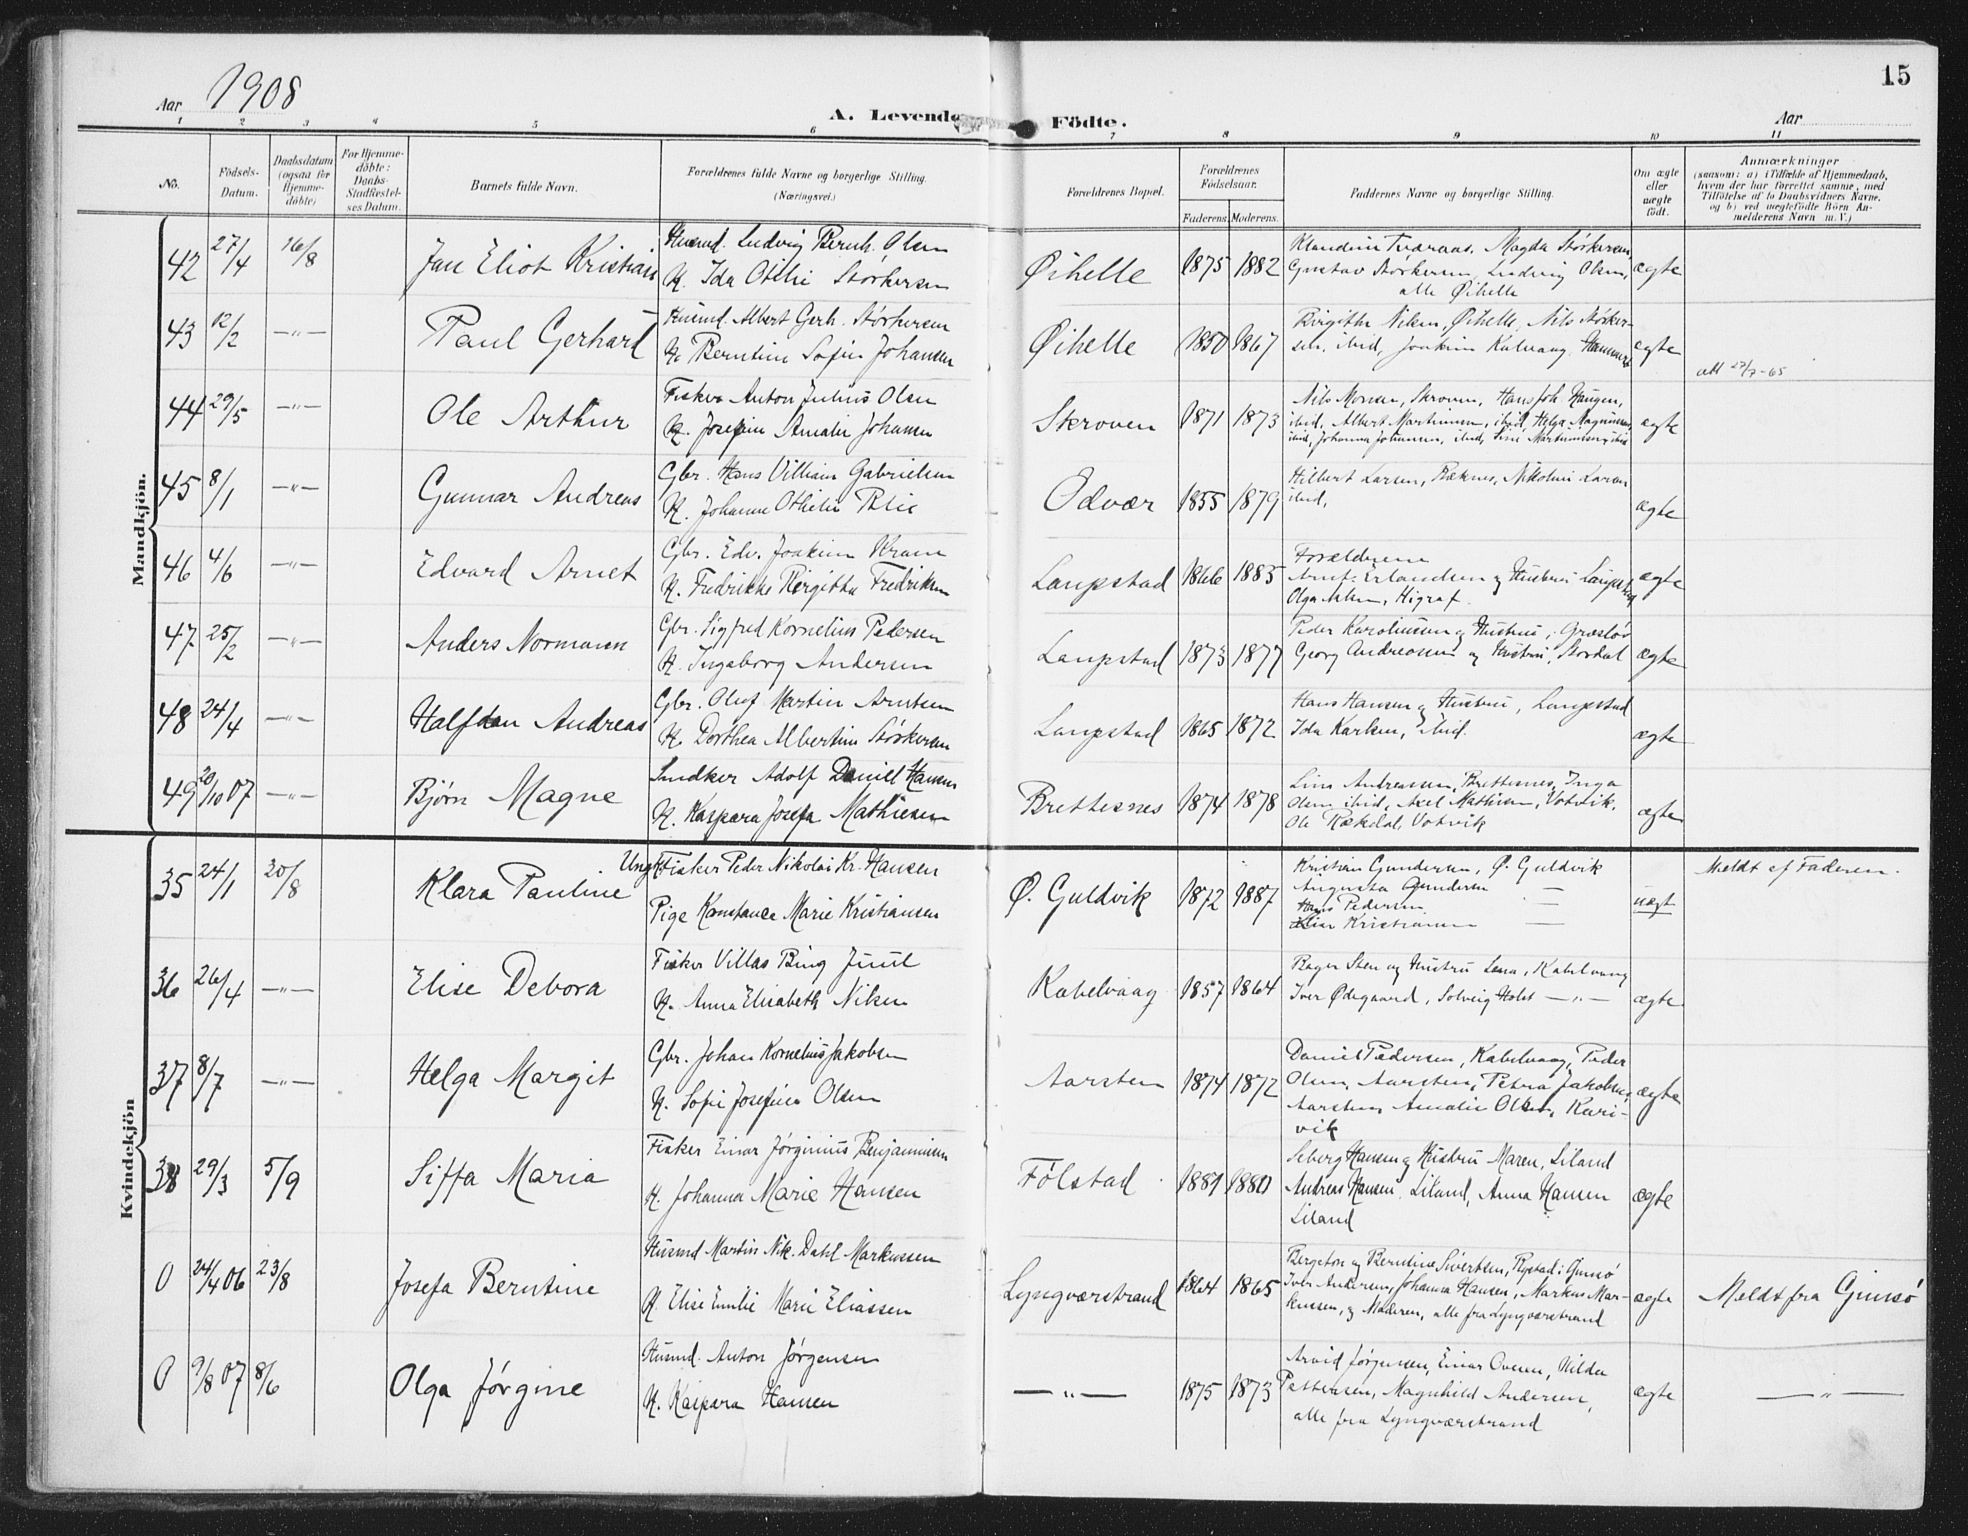 15
Aar 1908
A. Levende Födte.
Aar
1 2 3 4 5 6 7 8 9 10 11
No.
Födsels-Datum.
Daabsdatum (ogsaa for Hjemmedöbte)
For Hjemmedöbte: Daabs-Stadfæstelses Datum.
Barnets fulde Navn.
Forældrenes fulde Navne og borgerlige Stilling. (Næringsvei.)
Forældrenes Bopæl.
Forældrenes Födselsaar.
Faderens. Moderens.
Faddernes Navne og borgerlige Stilling.
Om ægte eller uægte født.
Anmærkninger
(saasom: a) i Tilfælde af Hjemmedaab, hvem der har forrettet samme, med Tilföielse af to Daabsvidners Navne, og b) ved uægtefödte Börn Anmelderens Navn m. V.)
Mandkjön.
42 27/4 16/8 Jan Eliot Kristian
Husmd. Ludvig Bernh. Olsen
H. Ida Otilie Störkersen
Øihelle 1875 1882
Magda Störkersen,
Gustav Störkersen, Ludvig Olsen,
alle Øihelle
ægte
43 12/2 -"- Paul Gerhard
Husmd. Albert Gerh. Störkersen
H. Berntine Sofie Johansen
Øihelle 1850 1867
Birgitte Nilsen, Øihelle, Nils Störker-
sen, ibid, Joakim Kalvaag,
ægte
27/7-65
44 29/5 -"- Ole Arthur
Fisker Anton Julius Olsen
H. Josefine Amalie Johansen
Skroven 1871 1873
Nils Monsen, Skroven, Hans Joh. Haugen,
ibid, Albert Martinussen, ibid, Helga Magnussen,
ibid, Johanna Johansen, ibid, Line Martinussen, ibid
ægte
45 8/1 -"- Gunnar Andreas
Gbr. Hans Villiam Gabrielsen
H. Johanne Othilie Blix
Odvær 1855 1879
Hilbert Larsen, Ræknes, Nikoline Larsen
ibid,
ægte
46 4/6 -"- Edvard Arnet
Gbr. Edv. Joakim Kram
H. Fredrikke Birgitta Fredriksen
Laupstad 1866 1885
Forældrene
Arnt Erlandsen og Hustru Laupstad
Olga Higraf.
ægte
47 25/2 -"- Anders Normann
Gbr. Sigfred Kornelius Pedersen
H. Ingeborg Andersen
Laupstad 1873 1877
Peder Karoliussen og Hustru,
Georg Andreassen og Hustru, Stordal
ægte
48 24/4 -"- Halfdan Andreas
Gbr. Oluf Martin Arntsen
H. Dorthea Albertine Störkersen
Laupstad 1865 1872
Hans Hansen og Hustru, Laupstad
Ida Karlsen, ibid.
ægte
49 20/10 07 -"- Bjørn Magne
Snedker Adolf Daniel Hansen
H. Kaspara Josefa Mathisen
Brettesnes 1874 1878
Lina Andreassen, Brettesnes, Inga
Olsen ibid, Axel Mathisen, Votvik,
Ole Rækdal, Votvik
ægte
Kvindekjön
35 24/1 30/8 Klara Pauline
Ungk. Fisker Peder Nikolai Kr. Hansen
Pige Konstance Marie Kristiansen
Ø. Guldvik 1872 1887
Kristian Gundersen, Ø. Guldvik
Augusta Gundersen —
Hans Pedersen —
Kristiansen —
uægt
Meldt af Faderen.
36 26/4 -"- Elise Debora
Fisker Villas Bing Juul
H. Anna Elisabeth Nilsen
Kabelvaag 1857 1864
Bager Sten og Hustru Lena, Kabelvaag
Iver Ødegaard, Solveig Holst -"-
ægte
37 8/7 -"- Helga Margit
Gbr. Johan Kornelius Jakobsen
H. Sofie Josefine Olsen
Aarsten 1874 1872
Daniel Pedersen, Kabelvaag, Peder
Olsen, Aarsten, Petra Jakobsen,
Aarsten, Amalie Olsen, Kari-
vik
ægte
38 29/3 5/9 Siffa Maria
Fisker Einar Jörginius Benjaminsen
H. Johanna Marie Hansen
Følstad 1881 1880
Seberg Hansen og Hustru Maren, Liland
Andreas Hansen, Liland, Anna Hansen
Liland
ægte
0 24/4 06 23/8 Josefa Berntine
Husmd Martin Nik. Dahl Markussen
H. Elise Emilie Marie Eliassen
Lyngværstrand 1864 1865
Bergeton og Berntine Sivertsen, Rystad i Gimsö
Iver Andersen, Johanna Hansen, Markus Mar-
kussen, og Moderen, alle fra Lyngværstrand
ægte
Meldt fra Gimsö
0 9/8 07 8/6 Olga Jörgine
Husmd. Anton Jörgensen
H. Kaspara Hansen
-"- 1875 1873
Arvid Jörgensen, Einar Ovesen, Hilda
Pettersen, Magnhild Andersen,
alle fra Lyngværstrand
ægte
-"-